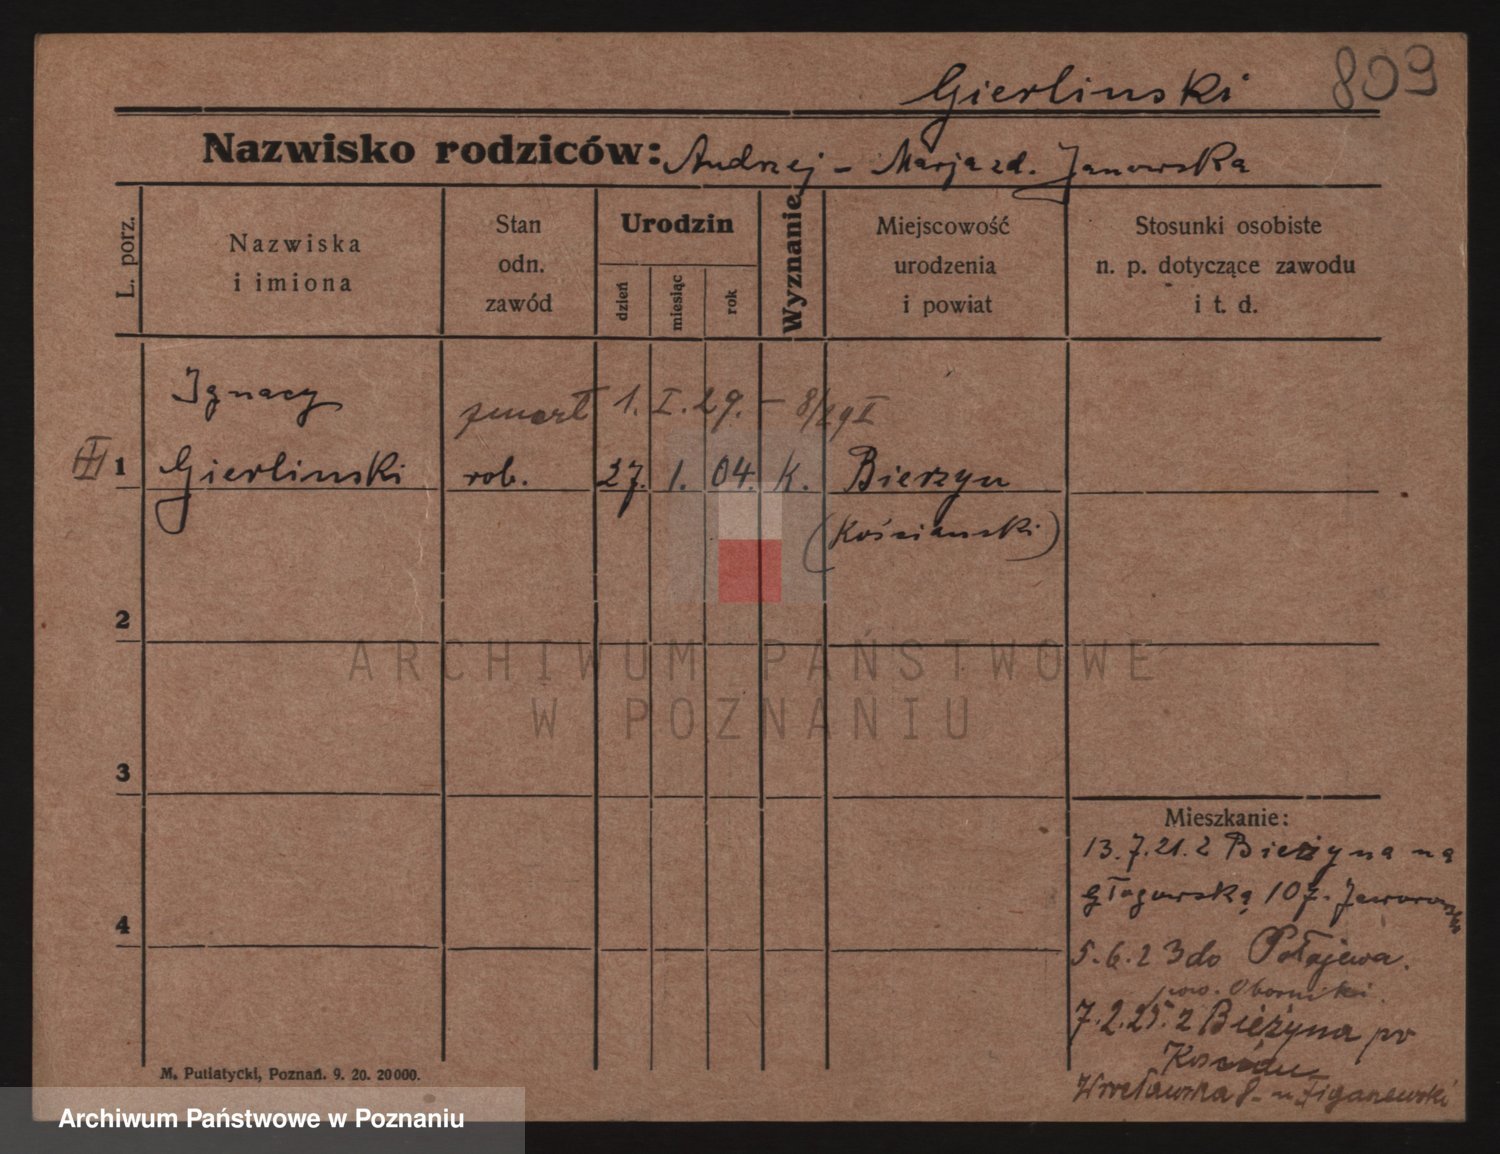 Gierlinski 809
Nazwisko rodziców: Andrzej – Marja zd. Janowska
L. porz.
Nazwiska
i imiona
Stan
odn.
zawód
Urodzin
dzień
miesiąc
rok
Wyznanie
Miejscowość
urodzenia
i powiat
Stosunki osobiste
n. p. dotyczące zawodu
i t. d.
Ignacy
zmarł 1. I. 29. – 8/29 I
1 Gierlinski rob. 27. 1. 04. K. Bierzyn
(Kościanski)
2
ARCHIWUM PAŃSTWOWE
W POZNANIU
3
Mieszkanie:
13.7.21. z Bieżyna na
głogowską 107.
4
5.6.23 do Połajewa.
pow. Oborniki.
7.2.25. z Bieżyna po
Wrocławska 8 –
M. Putiatycki, Poznań. 9. 20. 20000.
Archiwum Państwowe w Poznaniu